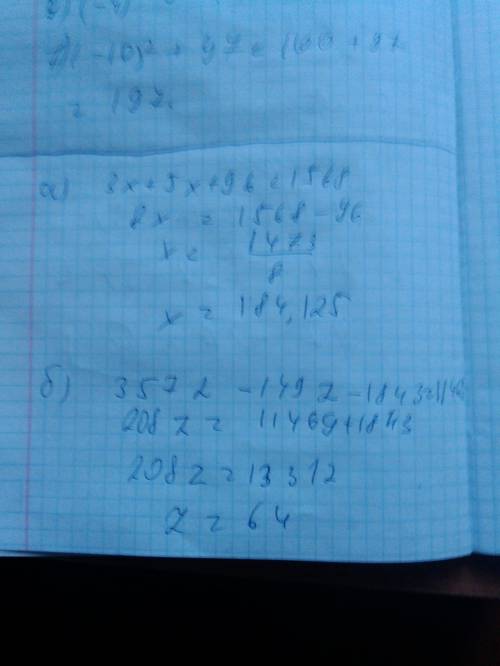 (-10)² + 97 = 100 + 97
= 197.
а) 3x+5x+96=1568
8x = 1568-96
x = 1473
8
x = 184,125
б) 357z - 149z - 1843=1146
208z = 11469+1843
208z = 13312
z = 64